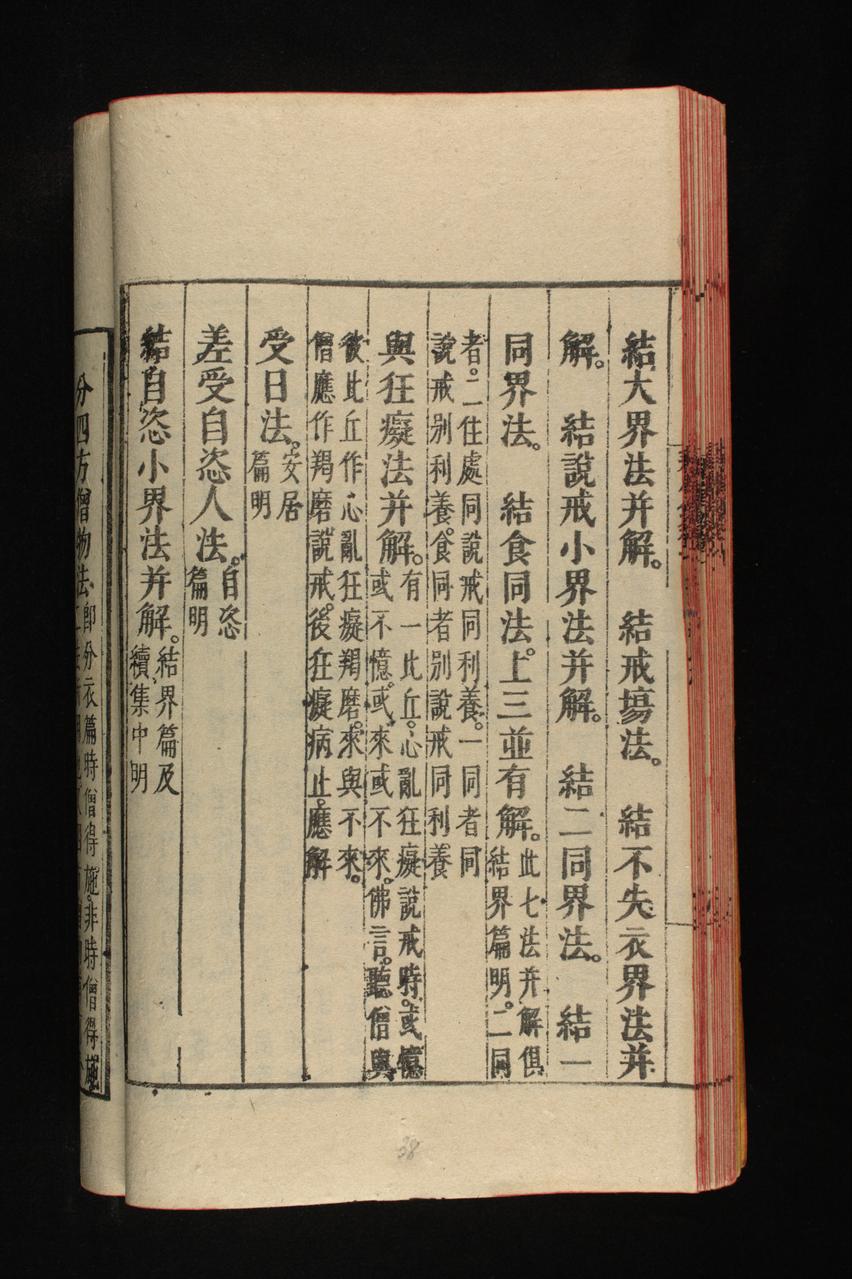 結大界法并解。　結戒場法。　結不失衣界法并
解。　結說戒小界法并解。　結二同界法。　結一
同界法。　結食同法。上三並有解。此七法并解俱
結界篇明。二同
者。二住處同說戒同利養。一同者同
說戒別利養。食同者別說戒同利養
與狂癡法并解。有一比丘。心亂狂癡說戒時。或憶
或不憶。或來或不來。佛言。聽僧與
彼比丘作心亂狂癡羯磨。來與不來。
僧應作羯磨說戒。後狂癡病止。應解
受日法。安居
篇明
差受自恣人法。自恣
篇明
結自恣小界法并解。結界篇及
續集中明
分四方僧物法
即分衣篇時僧得施。非時僧得施